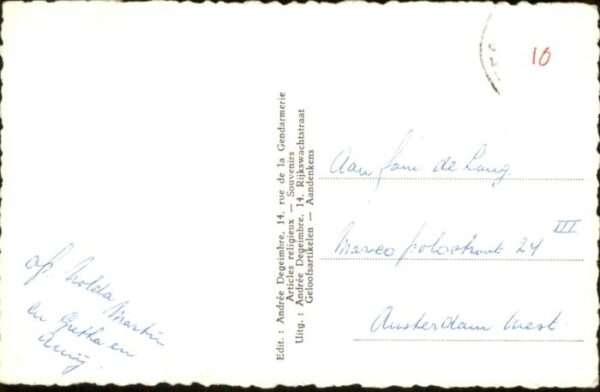 Edit. : Andrée Degeimbre, 14, rue de la Gendarmerie
Articles religieux — Souvenirs
Uitg. : Andrée Degeimbre, 14, Rijkswachtstraat
Geloofsartikelen — Aandenkens
10
Aan fam de Lang
Marco polostraat 24 III
Amsterdam West.
Martin
en Gretha en